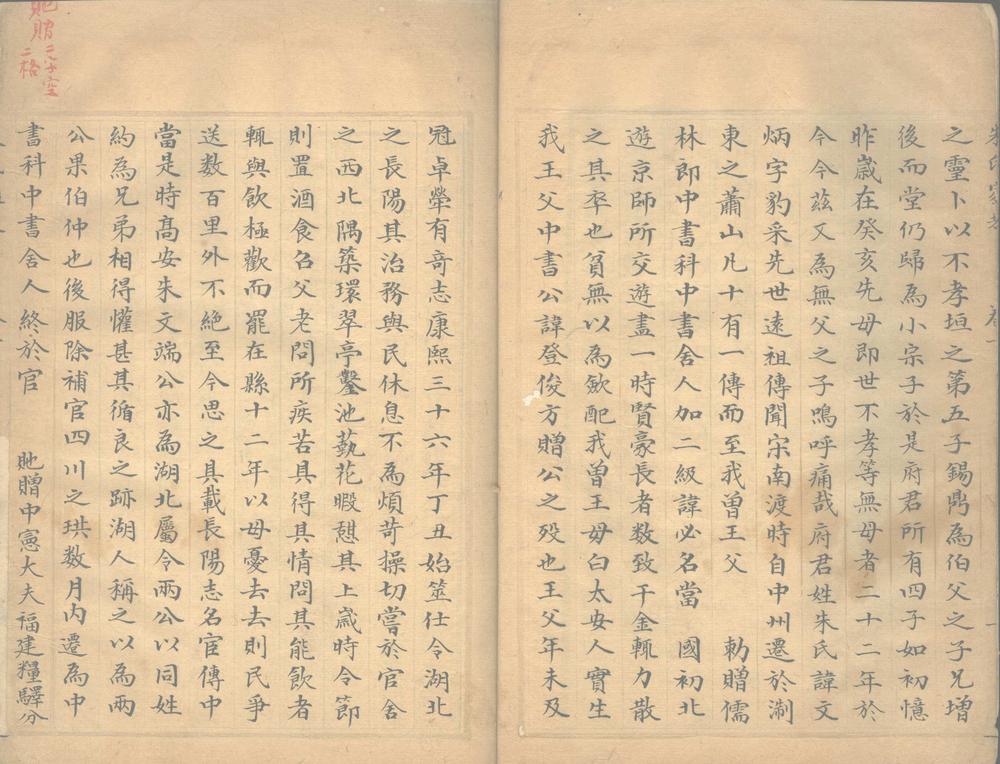 之靈卜以不孝垣之第五子錫鼎為伯父之子兄增
後而堂仍歸為小宗子於是府君所有四子如初憶
昨歲在癸亥先母即世不孝等無母者二十二年於
今今茲又為無父之子嗚呼痛哉府君姓朱氏諱文
炳字豹采先世遠祖傳聞宋南渡時自中州遷於淛
東之蕭山凡十有一傳而至我曽王父　勅贈儒
林郎中書科中書舍人加二級諱必名當　國初北
遊京師所交遊盡一時賢豪長者数致千金輒力散
之其卒也貧無以為歛配我曽王母白太安人實生
我王父中書公諱登俊方贈公之殁也王父年未及
冠卓犖有竒志康熙三十六年丁丑始筮仕令湖北
之長陽其治務與民休息不為煩苛操切嘗於官舍
之西北隅築環翠亭鑿池蓺花暇憇其上歲時令節
則置酒食召父老問所疾苦具得其情問其能飲者
輒與飲極歡而罷在縣十二年以母憂去去則民爭
送数百里外不絶至今思之具載長陽志名宦傳中
當是時髙安朱文端公亦為湖北屬令兩公以同姓
約為兄弟相得懽甚其循良之跡湖人稱之以為兩
公果伯仲也後服除補官四川之珙数月内遷為中
書科中書舍人終於官　貤贈中憲大夫福建糧驛分
貤贈二字空
二格